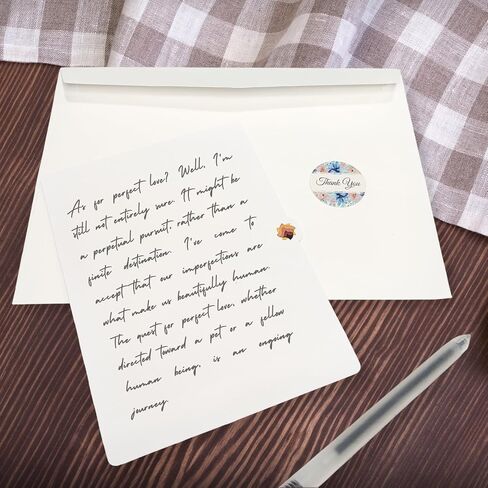 As for perfect love? Well, I'm
still not entirely sure. It might be
a perpetual pursuit rather than a
finite destination. I've come to
accept that our imperfections are
what make us beautifully human.
The quest for perfect love, whether
directed toward a pet or a fellow
human being, is an ongoing
journey.
Thank You